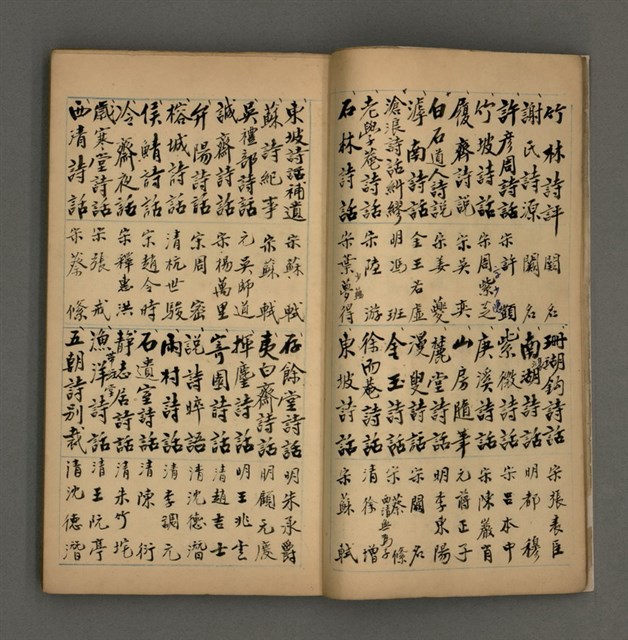 竹林詩評　闕名
謝氏詩源　闕名
許彦周詩話　宋許顗
竹坡詩話　宋周紫芝
履齋詩說　宋吳奕
白石道人詩說　宋姜夔
滹南詩話　金王若虛
滄浪詩話糾繆　明馮班
老學菴詩話　宋陸游
石林詩話　宋葉夢得
珊瑚鈎詩話　宋張表臣
南湖詩話　明都穆
紫微詩話　宋呂本中
庚溪詩話　宋陳巖肖
山房隨筆　元蔣正子
麓堂詩話　明李東陽
漫叟詩話　宋闕名
金玉詩話　宋蔡絛
徐而菴詩話　清徐增
東坡詩話　宋蘇軾
東坡詩話補遺　宋蘇軾
蘇詩紀事　宋蘇軾
吳禮部詩話　元吳師道
誠齋詩話　宋楊萬里
弁陽詩話　宋周密
榕城詩話　清杭世駿
侯鯖詩話　宋趙令時
冷齋夜話　宋釋惠洪
歲寒堂詩話　宋張戒
西清詩話　宋蔡絛
存餘堂詩話　明朱承爵
夷白齋詩話　明顧元慶
揮麈詩話　明王兆雲
寄園詩話　清趙吉士
說詩晬語　清沈德潛
雨村詩話　清李調元
石遺室詩話　清陳衍
靜志居詩話　清朱竹垞
漁洋詩話　清王阮亭
五朝詩別裁　清沈德潛